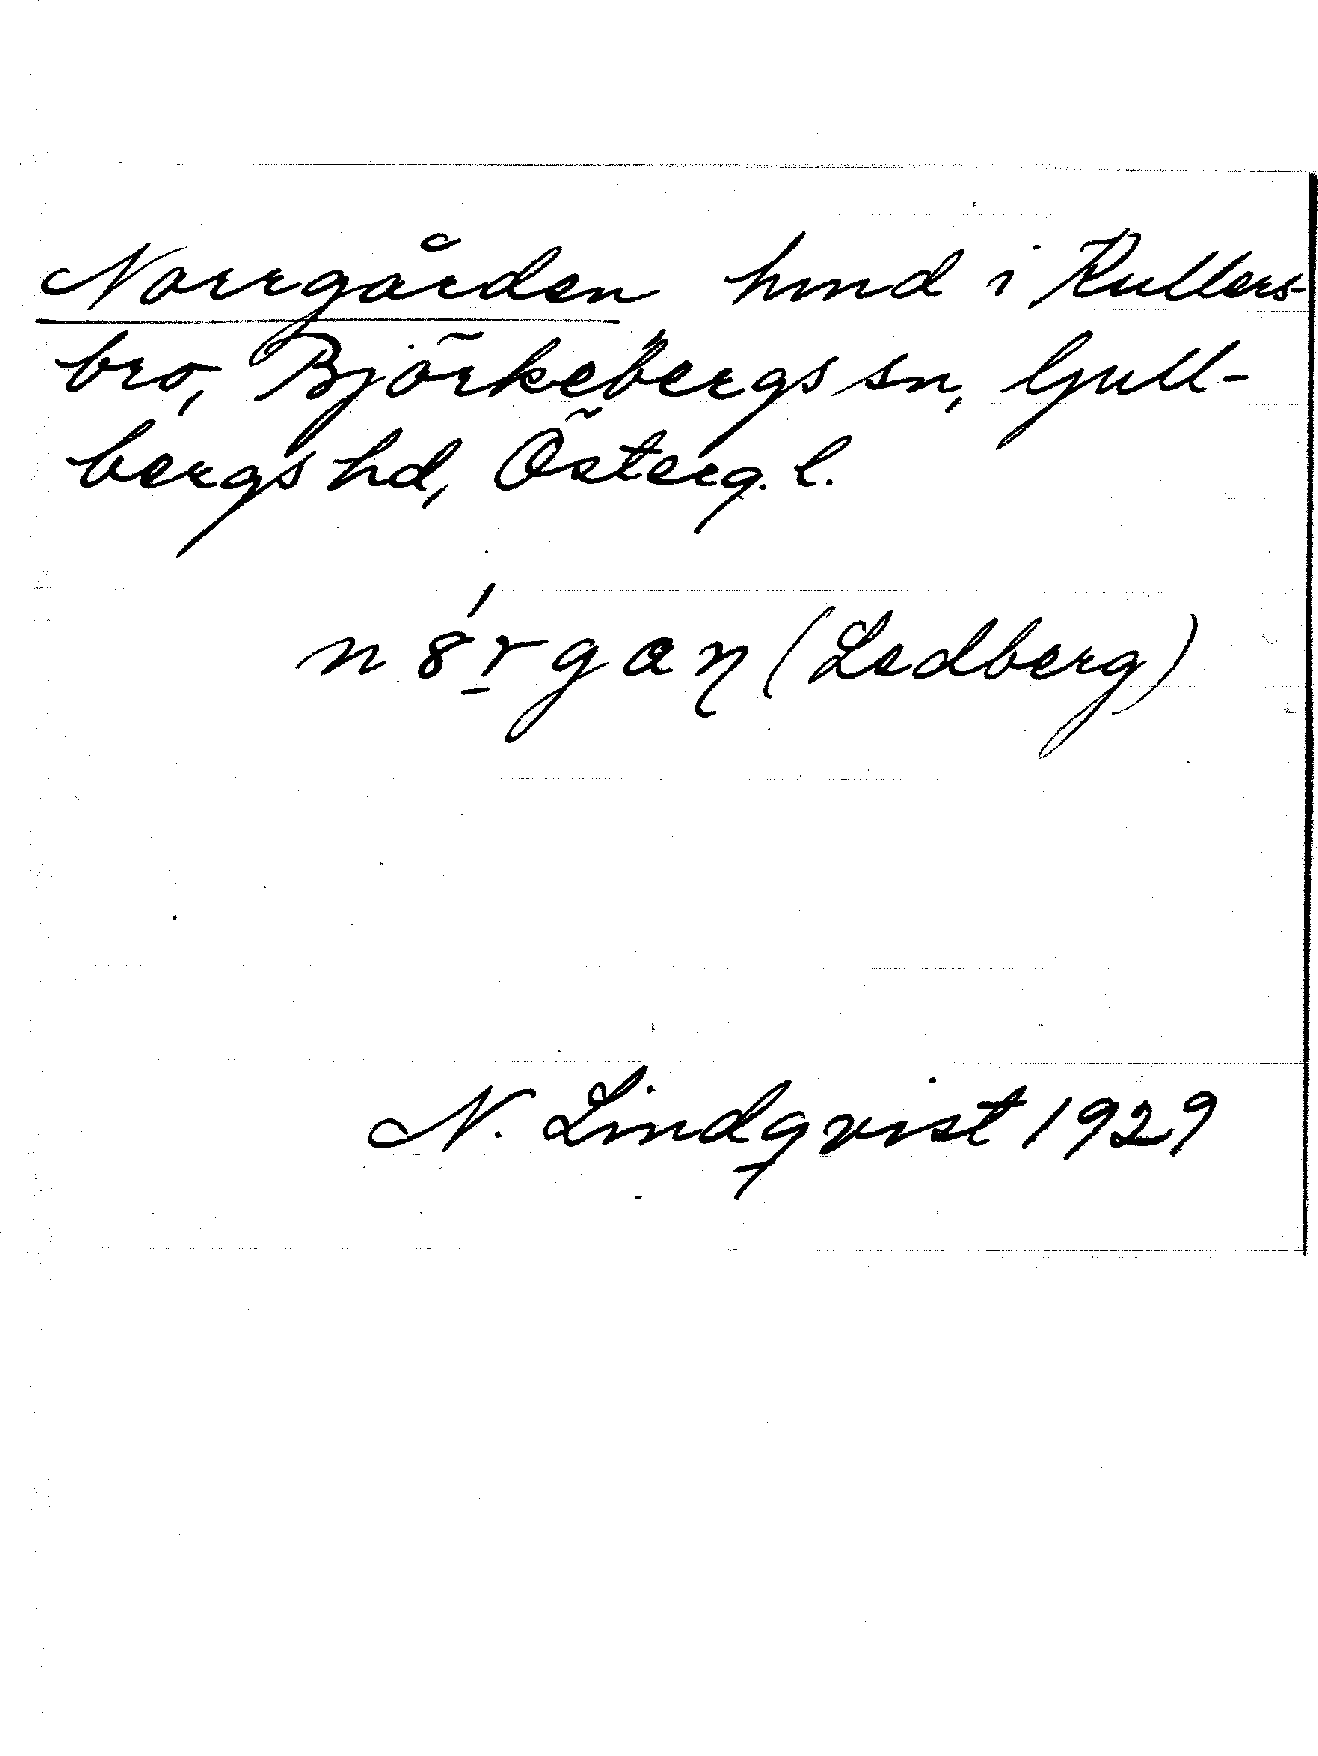 Norrgården hmd i Kullers-
bro, Björkebergs sn, Gull-
bergs hd, Österg. l.
n8́rgaɳ (Ledberg)
N. Lindqvist 1929